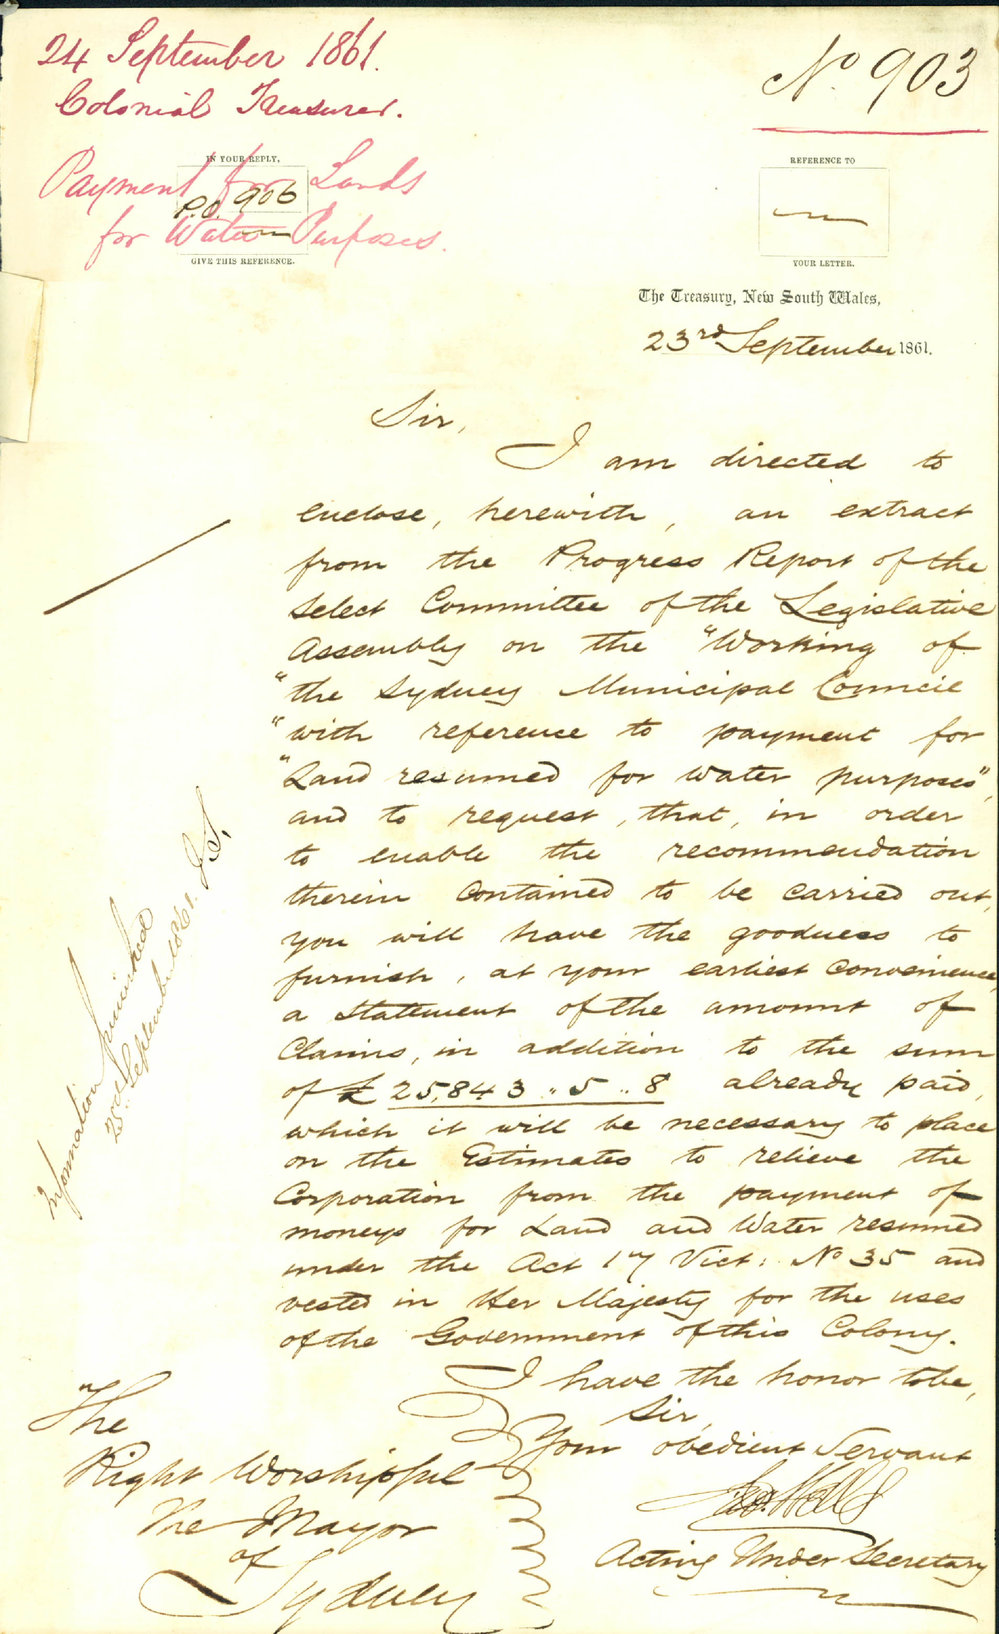 24 September 1861.
Colonial Treasurer.
Payment for Lands
for Water Purposes.
No 903
IN YOUR REPLY,
P.O. 906
GIVE THIS REFERENCE.
REFERENCE TO
YOUR LETTER.
The Treasury, New South Wales,
23rd September 1861.
Sir,
I am directed to
enclose, herewith, an extract
from the Progress Report of the
Select Committee of the Legislative
Assembly on the "Working of
"the Sydney Municipal Council
"with reference to payment for
"Land resumed for water purposes",
and to request, that, in order
to enable the recommendation
therein contained to be carried out,
you will have the goodness to
furnish, at your earliest convenience,
a statement of the amount of
Claims, in addition to the sum
of £25,843 .. 5 .. 8 already paid,
which it will be necessary to place
on the Estimates to relieve the
Corporation from the payment of
moneys for Land and Water resumed
under the Act 17 Vict: No 35 and
vested in Her Majesty for the uses
of the Government of this Colony.
I have the honor to be,
Sir,
Your obedient Servant
Acting Under Secretary
The
Right Worshipful
The Mayor
of
Sydney
Information furnished
25th September 1861. J.S.